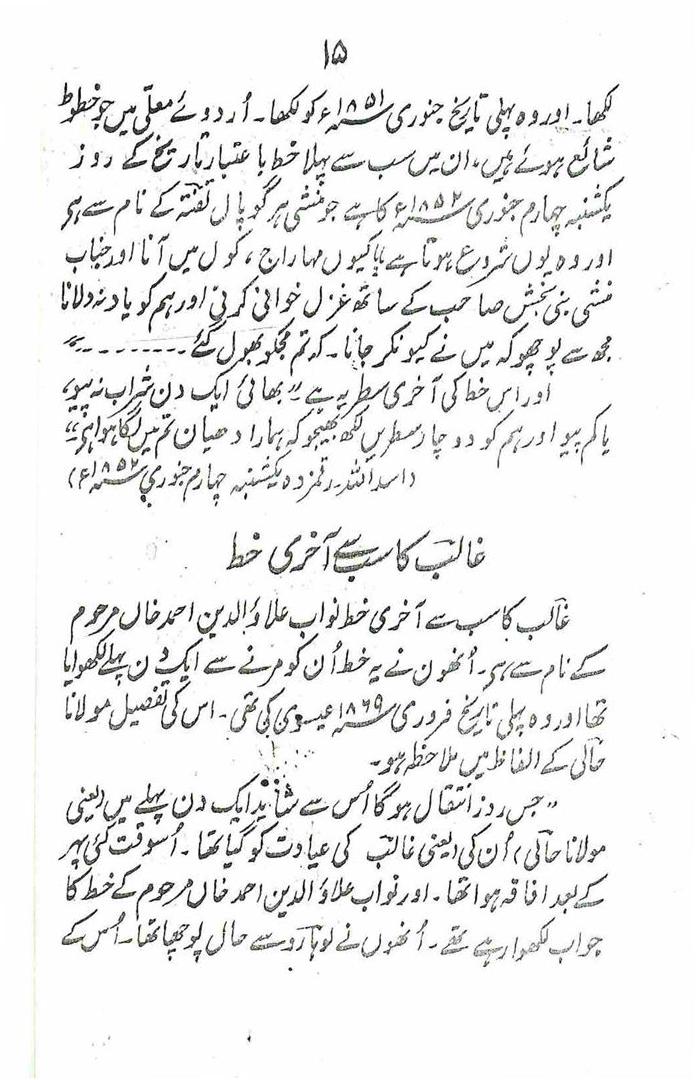 ۱۵
لکھا۔ اور وہ پہلی تاریخ جنوری ۱۸۵۱ء کو لکھا۔ اُردوئے معلّیٰ میں جو خطوط
شائع ہوئے ہیں، ان میں سب سے پہلا خط با عتبار تاریخ کے روز
یکشنبہ چہارم جنوری ۱۸۵۲ء کا ہے جو منشی ہر گوپال تفتہ کے نام سے ہی
اور وہ یوں شروع ہوتا ہے "کیوں مہاراج، کول میں آنا اور جناب
منشی نبی بخش صاحب کے ساتھ غزل خوانی کرنی اور ہم کو یاد نہ دلانا
مجھ سے پوچھو کہ میں نے کیونکر جانا۔ کہ تم مجکو بھول گئے ۔۔۔۔۔۔۔۔"
اور اس خط کی آخری سطر یہ ہے "بھائی ایک دن شراب نہ پیو،
یا کم پیو اور ہم کو دو چار سطریں لکھ بھیجو کہ ہمارا دھیان تم میں لگا ہوا ہی"
(اسد اللہ۔ رقمزدہ یکشنبہ چہارم جنوری ۱۸۵۲ء)
غالب کا سب سے آخری خط
غالب کا سب سے آخری خط نواب علاؤ الدین احمد خاں مرحوم
کے نام سے ہی۔ اُنھوں نے یہ خط اُن کو مرنے سے ایک دن پہلے لکھوایا
تھا اور وہ پہلی تاریخ فروری ۱۸۶۹ عیسوی کی تھی۔ اس کی تفصیل مولانا
حالی کے الفاظ میں ملاحظہ ہو۔
"جس روز انتقال ہوگا اُس سے شائد ایک دن پہلے میں (یعنی
مولانا حالی) اُن کی (یعنی غالب کی عیادت کو گیا تھا۔ اُسوقت کئی پہر
کے بعد افاقہ ہوا تھا۔ اور نواب علاؤ الدین احمد خاں مرحوم کے خط کا
جواب لکھوا رہے تھے۔ اُنھوں نے لوہارو سے حال پوچھا تھا۔ اُس کے